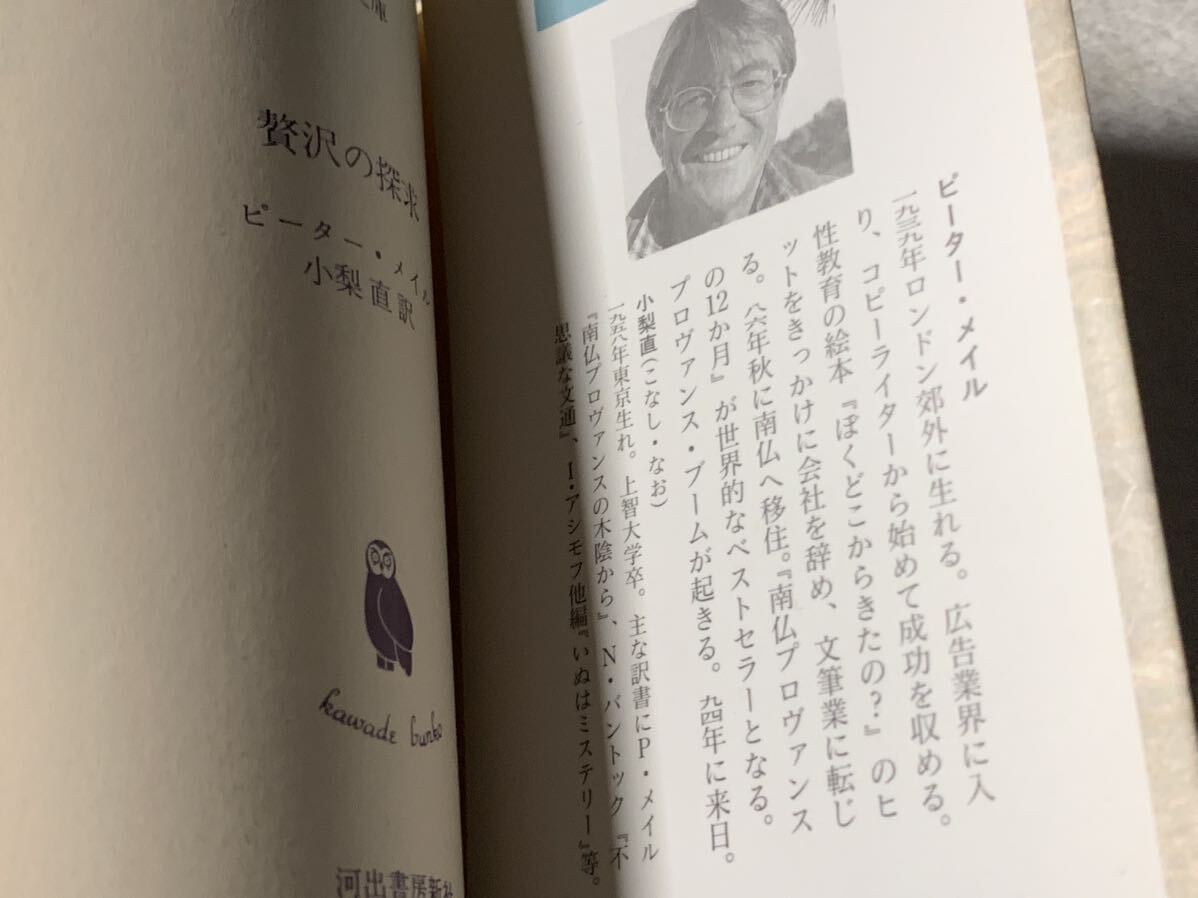 庫
贅沢の探求
ピーター・メイル
小梨直訳
kawade bunko
河出書房新社
ピーター・メイル
一九三九年ロンドン郊外に生れる。広告業界に入
り、コピーライターから始めて成功を収める。
性教育の絵本『ぼくどこからきたの？』のヒ
ットをきっかけに会社を辞め、文筆業に転じ
る。八六年秋に南仏へ移住。『南仏プロヴァンス
の12か月』が世界的なベストセラーとなる。
プロヴァンス・ブームが起きる。九四年に来日。
小梨直（こなし・なお）
一九五八年東京生れ。上智大学卒。主な訳書にP・メイル
『南仏プロヴァンスの木陰から』、N・バントック『不
思議な文通』、I・アシモフ他編『いぬはミステリー』等。